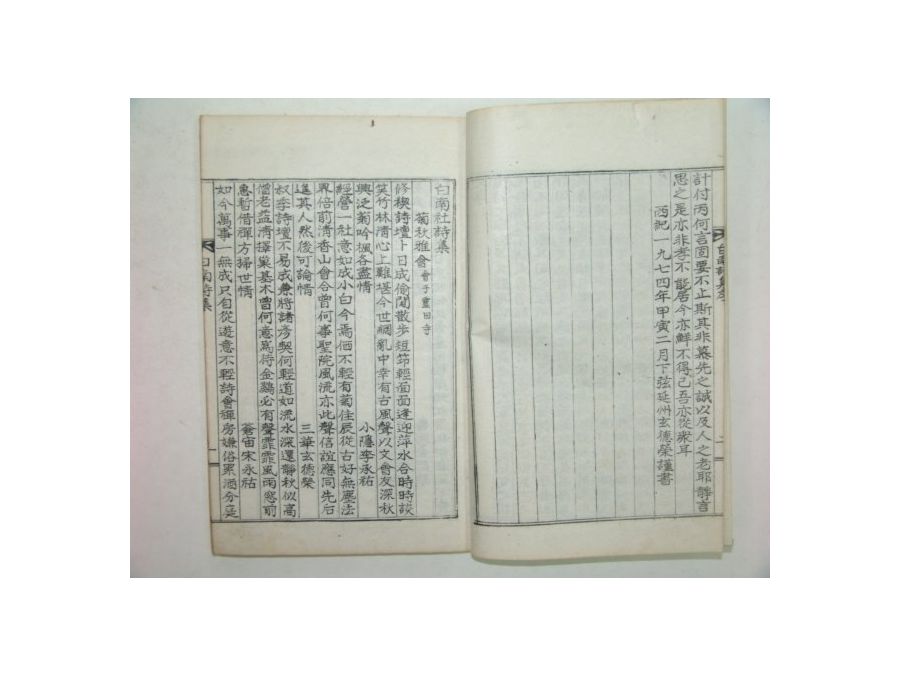 計付丙何言固要不止斯其非慕先之誠以及人之老耶靜言
思之是亦非孝不能居今亦鮮不得已吾亦從衆耳
西紀一九七四年甲寅二月下弦延州玄德榮謹書
白南社詩集
菊秋雅會 會于靈田寺
修稧詩壇卜日成偷閒散步短筇輕面面逢迎萍水合時時談
笑竹林淸心上難堪今世綱亂中幸有古風聲以文會友深秋
興泛菊吟楓各盡情 小隱李承祐
經營一社意如成小白今爲価不輕有菊佳辰從古好無塵法
界倍前淸香山會合曾何事聖院風流亦此聲信誼應同先后
進其人然後可論情 三華玄德榮
叔季詩壇不易成兼將諸彦契何輕道如流水深還靜秋似高
僧老益淸擇巢基木曾何意爲待金鷄必有聲霏霏風雨窓前
急暫借禪方掃世情 蒼宙宋永祐
如今萬事一無成只自從遊意不輕詩會禪房嫌俗累酒分庭
白南詩集
一